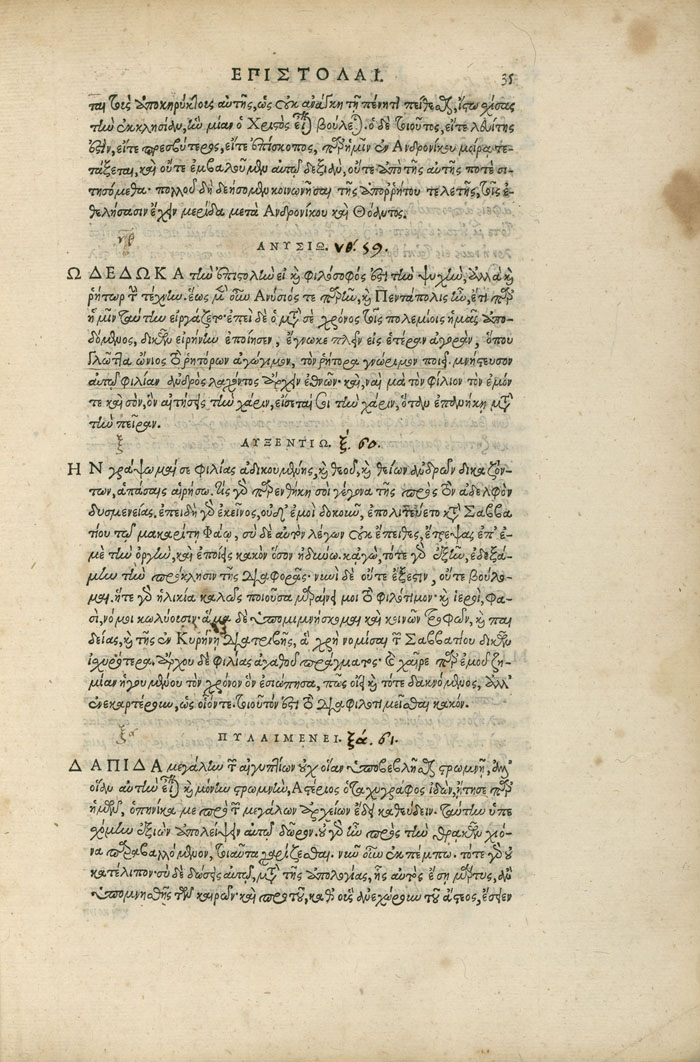 ΕΠΙΣΤΟΛΑΙ. 35
ται τοῖς ἀποκηρύκτοις αὐτῆς, ὡς οὐκ ἀνάγκη τῇ πένητι πείθεσθαι, ἴστω σχίσας
τὴν ἐκκλησίαν, ἣν μίαν ὁ Χριστὸς εἶναι βούλεται. ὁ δὲ τοιοῦτος, εἴτε λευίτης
ἐστὶν, εἴτε πρεσβύτερος, εἴτε ἐπίσκοπος, παρ' ἡμῖν ἐν Ανδρονίκου μοίρα τε-
τάξεται, καὶ οὔτε ἐμβαλοῦμεν αὐτῷ δεξιὰν, οὔτε ἀπὸ τῆς αὐτῆς ποτὲ σι-
τησόμεθα· πολλοῦ δὴ δεήσομεν κοινωνῆσαι τῆς ἀπορρήτου τελετῆς, τοῖς ἐ-
θελήσασιν ἔχειν μερίδα μετὰ Ανδρονίκου καὶ Θόαντος.
ΑΝΥΣΙΩ. νθ. 59.
Ω ΔΕΔΩΚΑ τὴν ἐπιστολὴν εἰ καὶ φιλόσοφός ἐστι τὴν ψυχὴν, ἀλλὰ καὶ
ῥήτωρ τὴν τέχνην. ἕως μὲν οὖν Ανύσιός τε παρῆν, καὶ Πεντάπολις ἦν, ἔτι παρ'
ἡμῖν ταύτην εἰργάζετο· ἐπεὶ δὲ ὁ μετὰ σὲ χρόνος τοῖς πολεμίοις ἡμᾶς ἀπο-
δόμενος, δικῶν εἰρήνην ἐποίησεν, ἔγνωκε πλεῖν εἰς ἑτέραν ἀγορὰν, ὅπου
γλῶττα ὤνιος τὸ ῥητόρων ἀγώγιμον, τὸν ῥήτορα γνώριμον ποιεῖ. μνήστευσον
αὐτῷ φιλίαν ἀνδρὸς λαχόντος ἄρχειν ἐθνῶν· καὶ, ναὶ μὰ τὸν φίλιον τὸν ἐμόν
τε καὶ σὸν, ὃν αἰτήσεις τὴν χάριν, εἴσεταί σοι τὴν χάριν, ὅταν ἐπαινῇ καὶ μετὰ
τὴν πεῖραν.
ΑΥΞΕΝΤΙΩ. ξ. 60.
Η Ν γράψωμαί σε φιλίας ἀδικουμένης, καὶ θεοῦ, καὶ θείων ἀνδρῶν δικαζόν-
των, ἁπάσαις αἱρήσω. τίς γὰρ παρενθήκη σοι γέγονα τῆς πρὸς τὸν ἀδελφὸν
δυσμενείας. ἐπειδὴ γὰρ ἐκεῖνος, οὐδ' ἐμοὶ δοκοῦν, ἐπολιτεύετο κατὰ Σαββα-
τίου τῷ μακαρίτῃ Φάῳ, σὺ δὲ αὐτὸν λέγων οὐκ ἔπειθες, ἔτρεψας ἐπ' ἐ-
μὲ τὴν ὀργὴν, καὶ ἐποίεις κακὸν ὅσον ἠδύνω. κἀγὼ, τότε γὰρ ἐξῆν, ἐδεξά-
μην τὴν πρόκλησιν τῆς διαφορᾶς· νυνὶ δὲ οὔτε ἔξεστιν, οὔτε βούλο-
μαι. ἥτε γὰρ ἡλικία καλῶς ποιοῦσα μαραίνει μοι τὸ φιλότιμον· καὶ ἱεροὶ, φα-
σὶ, νόμοι κωλύουσιν· ἅμα δὲ ὑπομιμνήσκομαι καὶ κοινῶν τροφῶν, καὶ παι
δείας, καὶ τῆς ἐν Κυρήνῃ διατριβῆς, ἃ χρὴ νομίσαι τῶν Σαββατίου δικῶν
ἰσχυρότερα. ἄρχου δὲ φιλίας ἀγαθοῦ πράγματος· καὶ χαῖρε παρ' ἐμοῦ ζη-
μίαν ἡγουμένου τὸν χρόνον ὃν ἐσιώπησα, πῶς οἴει καὶ τότε δακνόμενος, ἀλλ'
ἐνεκαρτέρουν, ὡς οἷόντε. τοιοῦτόν ἐστι τὸ διαφιλοτιμεῖσθαι κακόν.
ΠΥΛΑΙΜΕΝΕΙ. ξά. 61.
ΔΑΠΙΔΑ μεγάλην τῶν αἰγυπτίων οὐχ οἵαν ὑποβεβλῆσθαι στρωμνῇ, ἀλλ'
οἵαν αὐτὴν εἶναι καὶ μόνην στρωμνὴν, Αστέριος ὁ ταχυγράφος ἰδὼν, ᾔτησε παρ'
ἡμῶν, ὁπηνίκα με πρὸ τῶν μεγάλων ἀρχείων ἔδει καθεύδειν. ταύτην ὑπε
σχόμην ἐξιὼν ἀπολείψειν αὐτῷ δῶρον. οὐ γὰρ ἦν πρὸς τὴν θρᾳκῶν χιό-
να παραβαλλόμενον, τοιαῦτα χαρίζεσθαι. νῦν οὖν ἐκπέμπω. τότε γὰρ οὐ
κατέλιπον· σὺ δὲ δώσεις αὐτῷ, μετὰ τῆς ἀπολογίας, ἧς αὐτὸς ἔσῃ μάρτυς, ἂν
ὑπομνησθῇς τῶν καιρῶν· καὶ προτοῦ, καθ' οὓς ἀνεχώρουν τοῦ ἄστεος, ἔσειεν